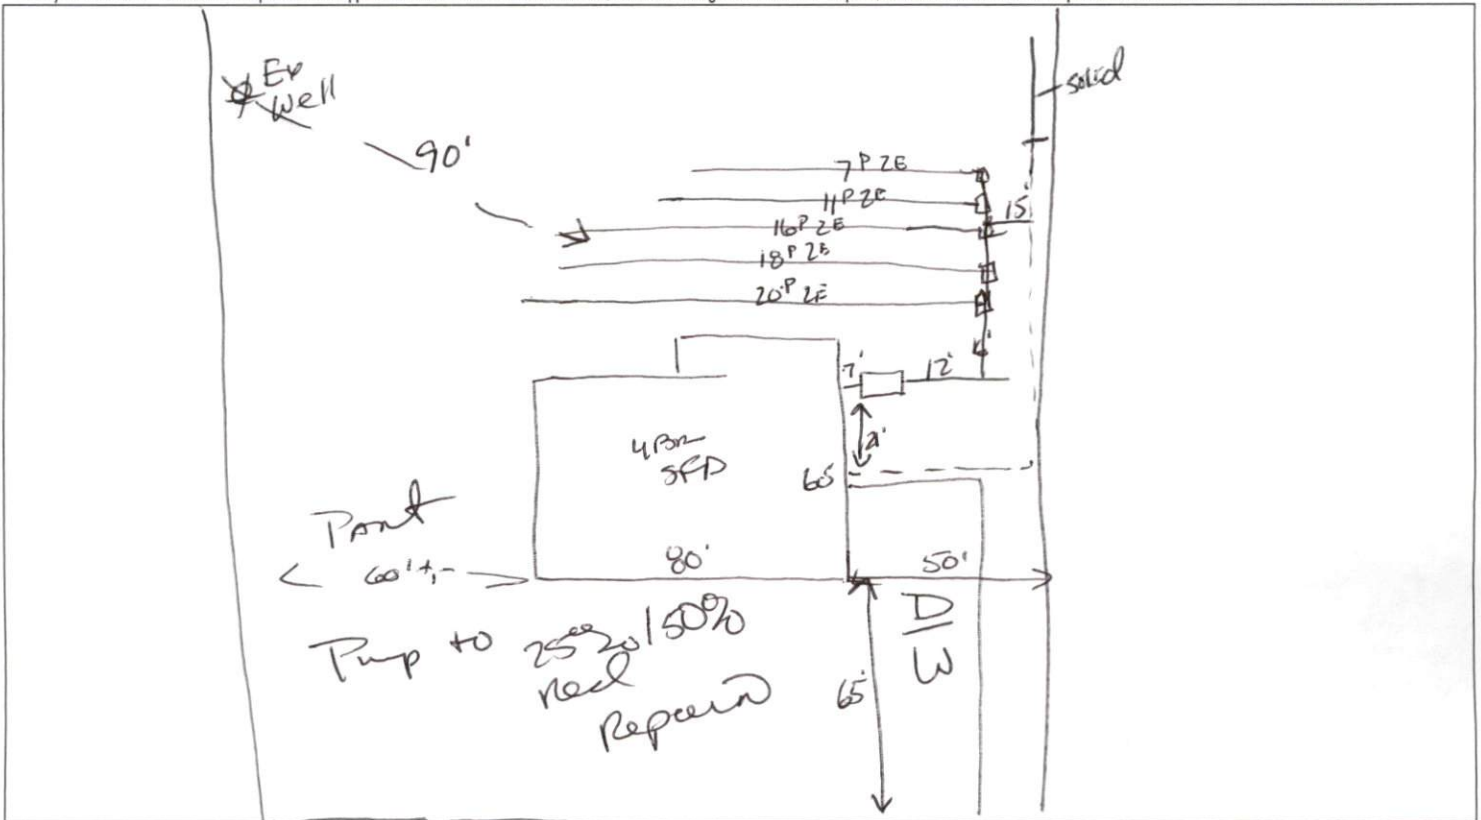 Ex
Well
solid
90'
7P 2E
11P 2E
15'
16P 2E
18P 2E
20P 2E
6'
7'
12'
4 BR
SFD
60'
60' +,-
80'
50'
D
W
Pump to
50%
Red
Repair
65'